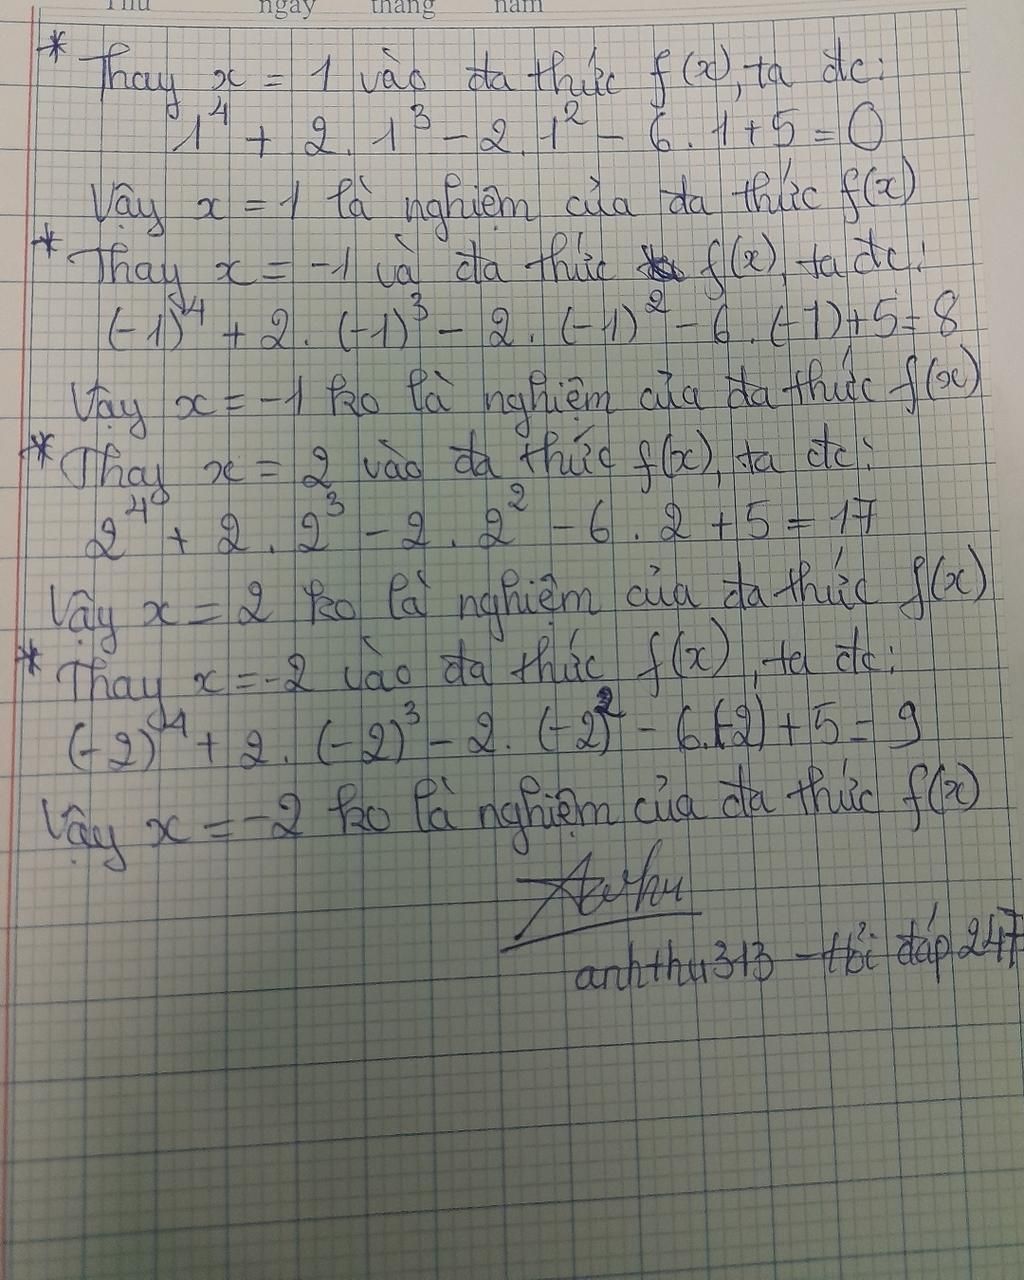 Thứ ngày tháng năm
* Thay x = 1 vào đa thức f(x), ta đc:
1⁴ + 2. 1³ - 2. 1² - 6. 1 + 5 = 0
Vậy x = 1 là nghiệm của đa thức f(x)
* Thay x = -1 và đa thức f(x), ta đc:
(-1)⁴ + 2. (-1)³ - 2. (-1)² - 6. (-1) + 5 = 8
Vậy x = -1 ko là nghiệm của đa thức f(x)
* Thay x = 2 vào đa thức f(x), ta đc:
2⁴ + 2. 2³ - 2. 2² - 6. 2 + 5 = 17
Vậy x = 2 ko là nghiệm của đa thức f(x)
* Thay x = -2 vào đa thức f(x), ta đc:
(-2)⁴ + 2. (-2)³ - 2. (-2)² - 6.(-2) + 5 = 9
Vậy x = -2 ko là nghiệm của đa thức f(x)
anhthu313 - hỏi đáp 247